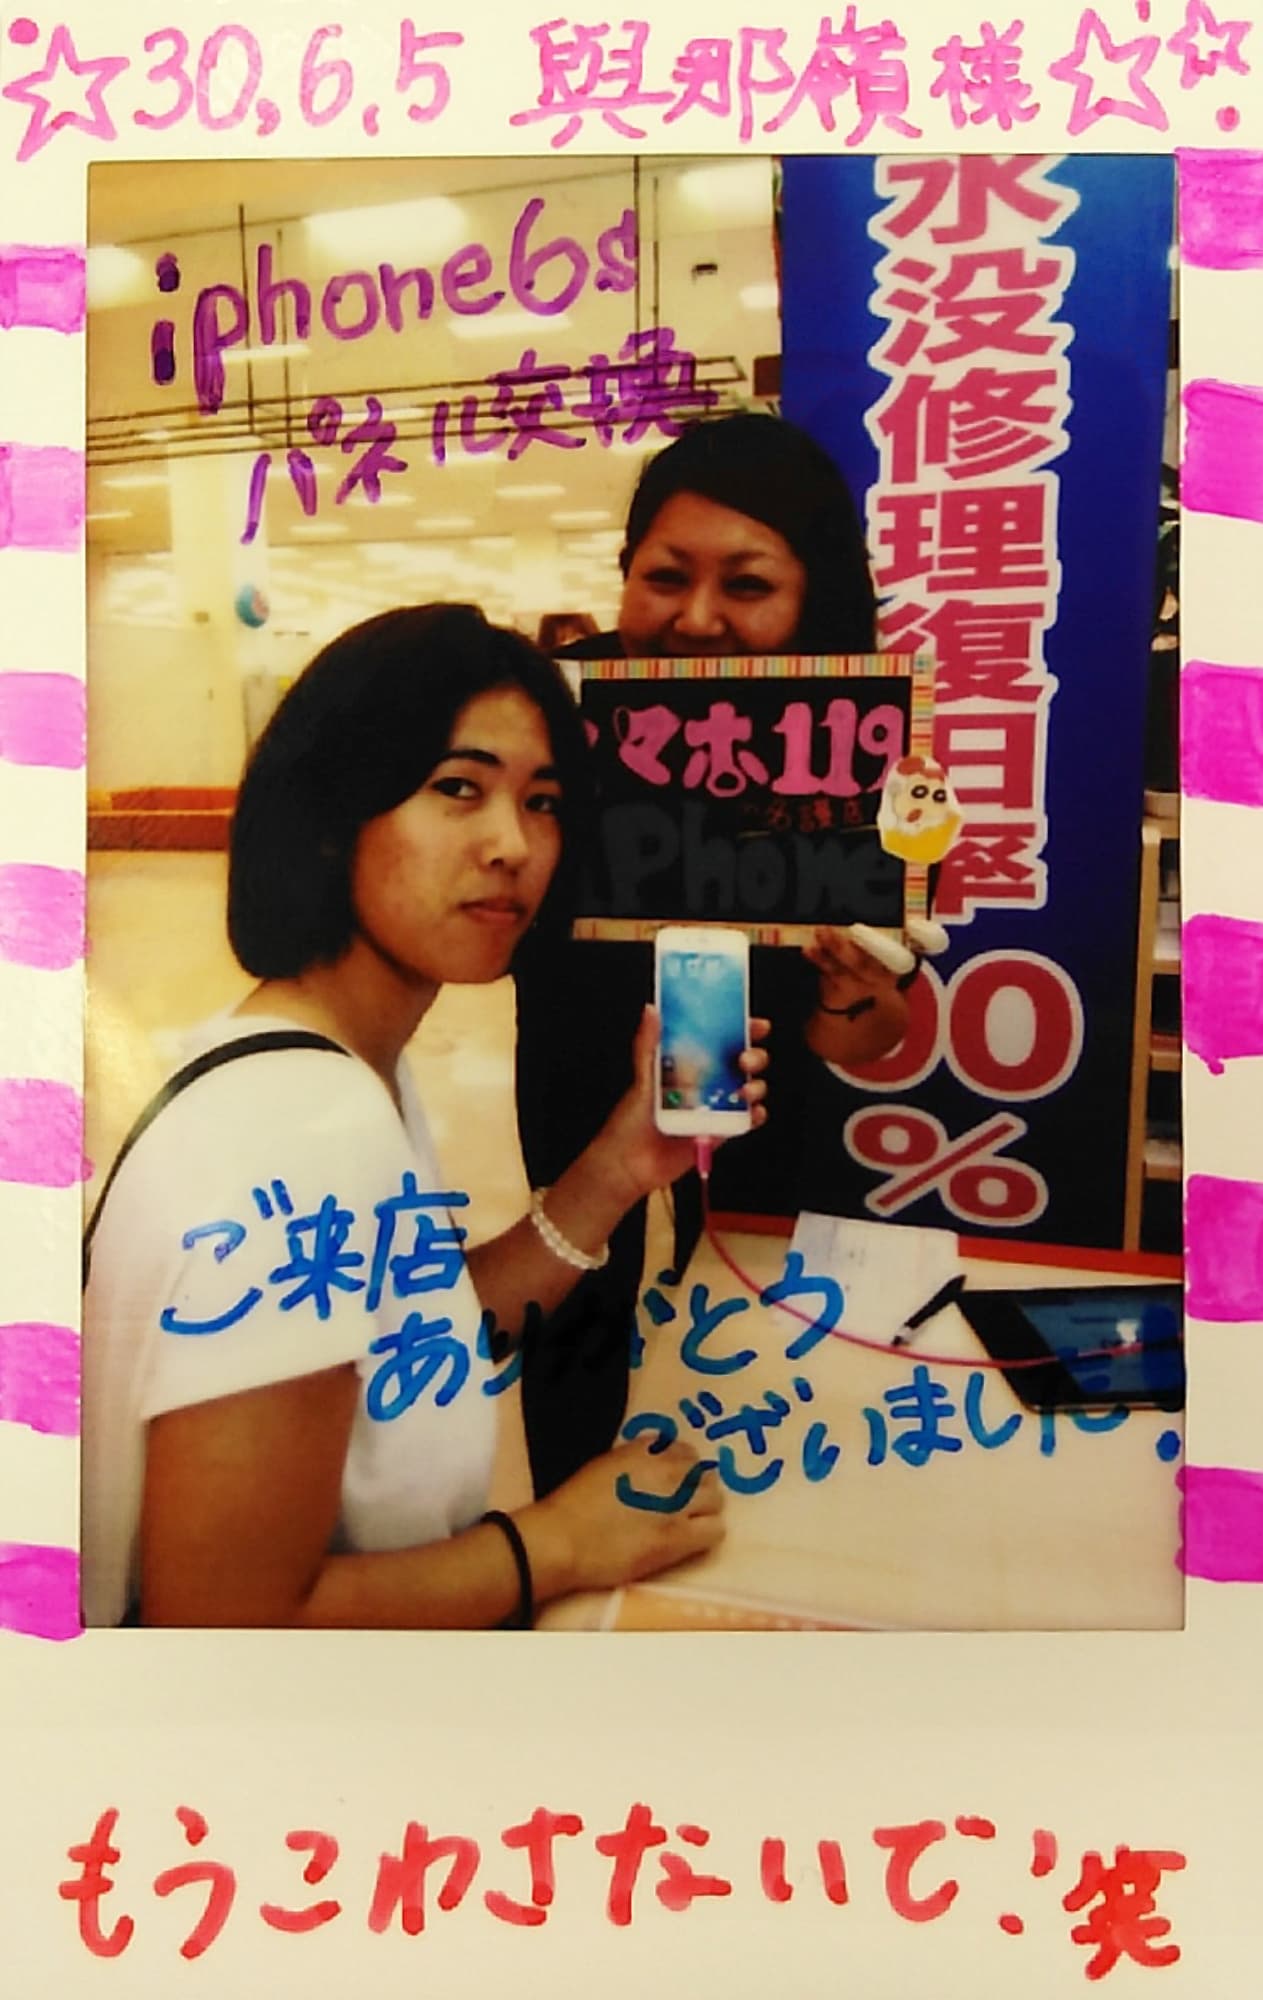 ☆30.6.5 與那嶺様☆☆
iphone6s
パネル交換
水没修理復旧率
00
%
スマホ119
名護店
iPhone
ご来店
ありがとう
ございました!
もうこわさないで!笑